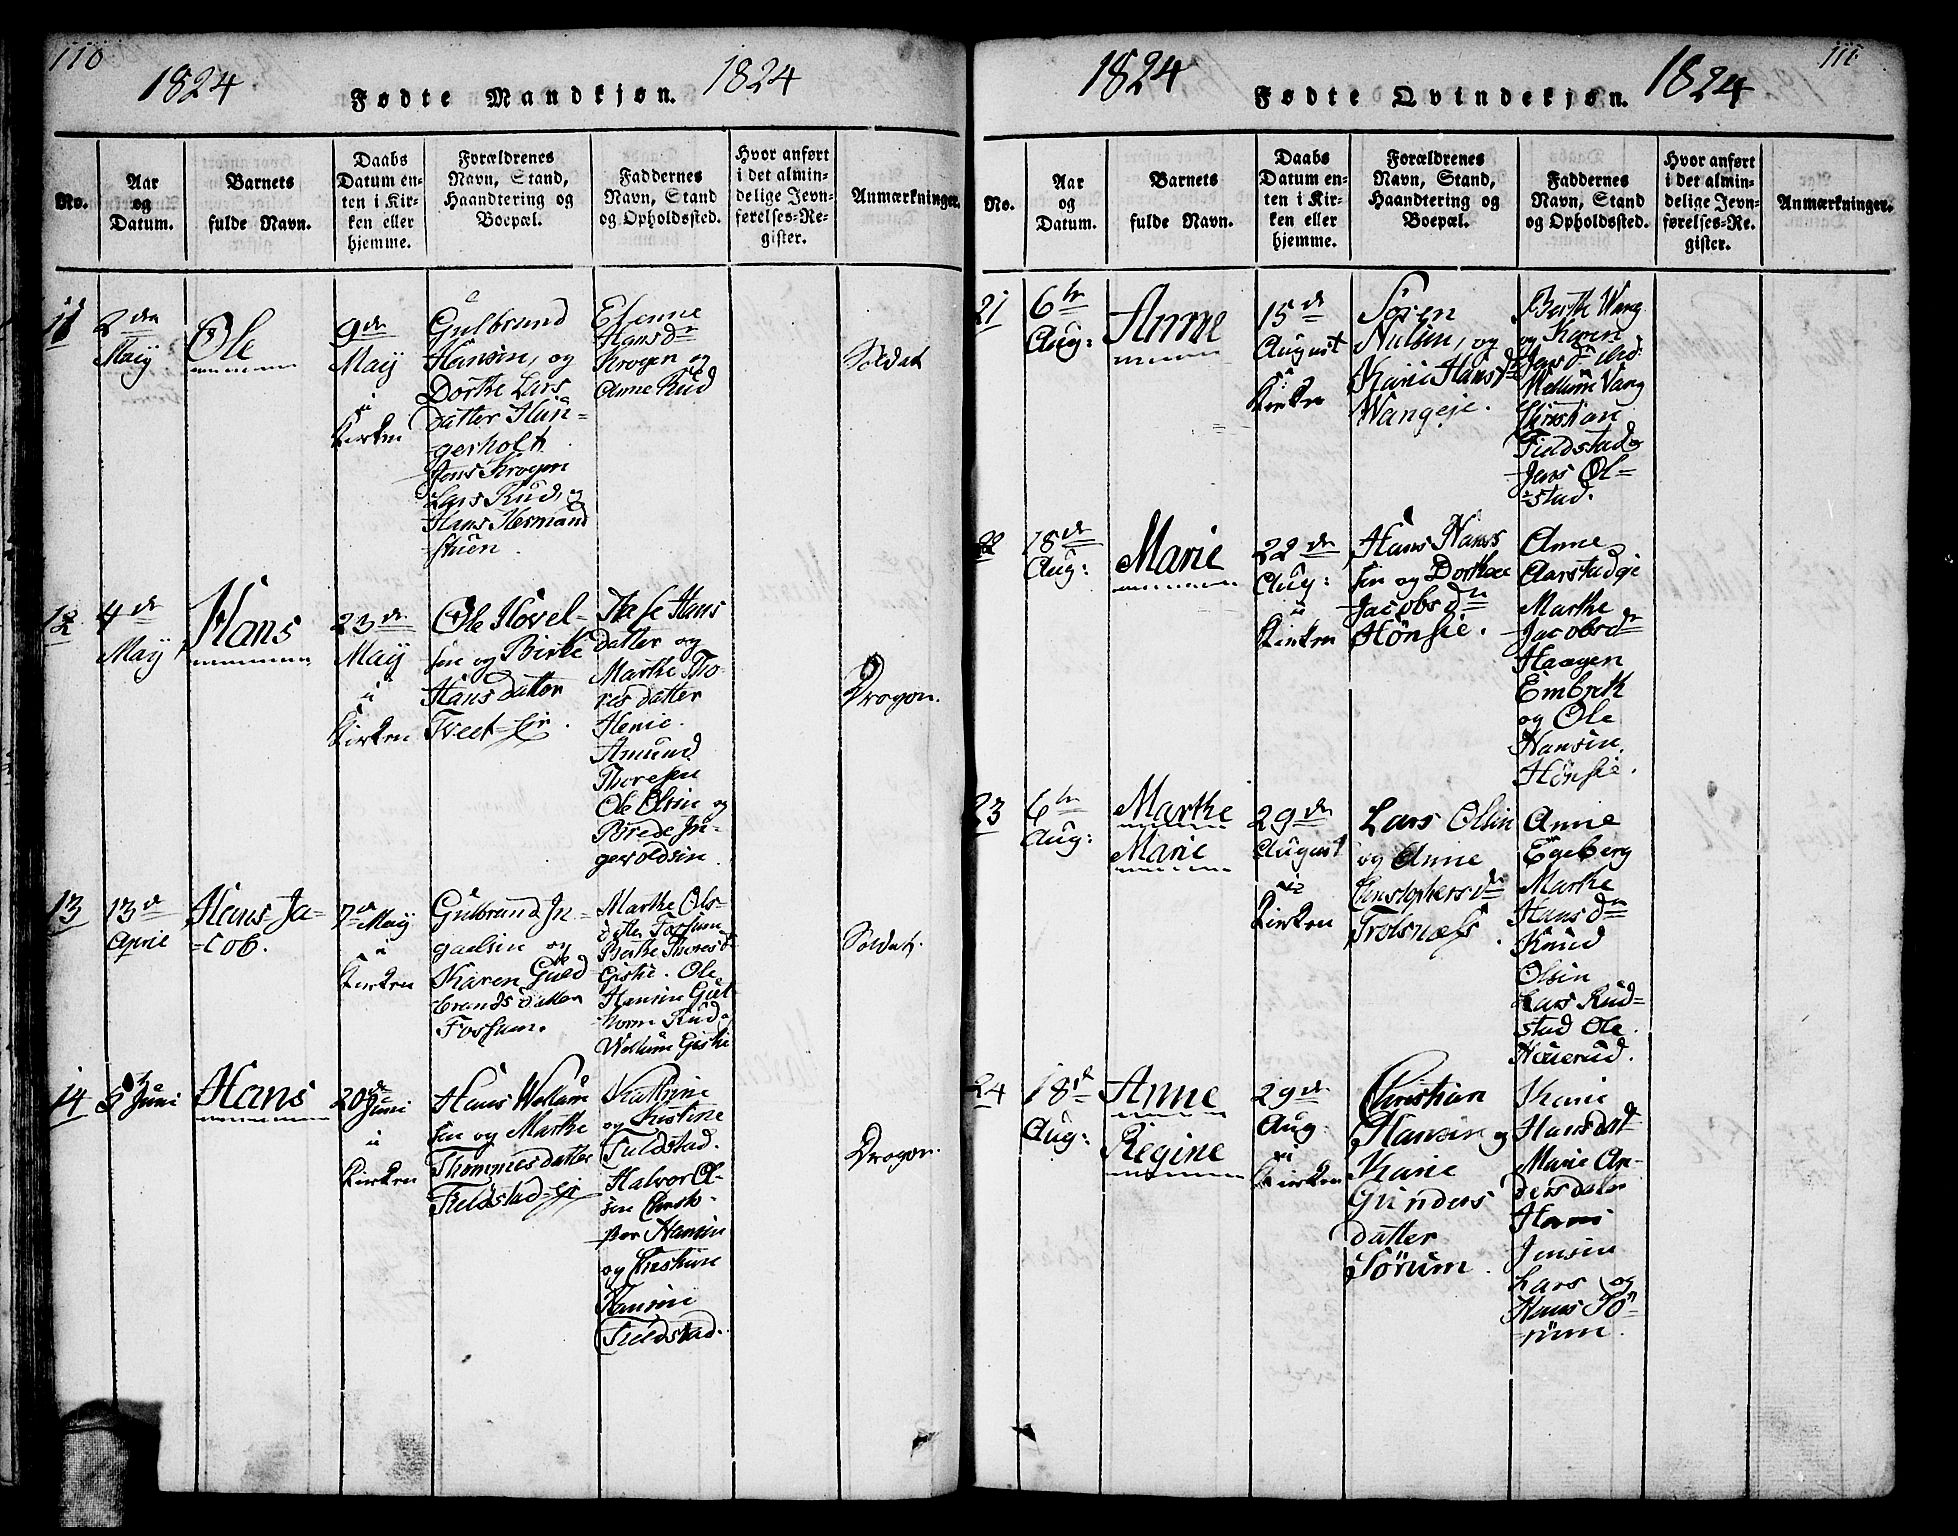 110
1824
1824
Fødte Mandkjøn.
No.
Aar
og
Datum.
Barnets
fulde Navn.
Daabs
Datum en-
ten i Kir-
ken eller
hjemme.
Forældrenes
Navn, Stand,
Haandtering og
Boepæl.
Faddernes
Navn, Stand
og Opholdssted.
Hvor anført
i det almin-
delige Jevn-
førelses-Re-
gister.
Anmærkninger.
11
2den
Maij
Ole
9de
Maij
i
Kirken
Gulbrand
Hansen, og
Dorthe Lars
datter Hun-
gerholt
Jens Krogen
Lars Rud, og
Hans Hermand
stuen.
Hansdr
Krogen og
Anne Rud
Soldat
12
4de
Maij
Hans
23de
Maij
i
Kirken
Ole Hovel-
sen og Birte
Hansdatter
Tveet-Eje.
Hans
datter og
Marthe Tho-
resdatter
Henie.
Amund
Thoresen
Ole Olsen og
Brede In-
gevoldsen.
Dragon.
13
13de
April
Hans Ja-
cob.
7de Maij
i
Kirken
Gulbrand In-
og
Karen Guld
brandsdatter
Fossum.
Marthe Ols-
datter Fossum
Berthe Thoresdr
Giskie. Ole
Hansen Gut-
horm Rud og
Wollum Giskie
Soldat.
14
5te Juni
Hans
20de
Juni
i
Kirken
Hans Wollum
sen og Marthe
Thommesdatter
Fieldstad-Eje
Kathrine
og Kristine
Fieldstad.
Halvor Ol-
sen Christo-
pher Hansen
og Christian
Hansen
Fieldstad.
Dragon.
111.
1824
1824
Fødte Qvindekjøn.
No.
Aar
og
Datum.
Barnets
fulde Navn.
Daabs
Datum en-
ten i Kir-
ken eller
hjemme.
Forældrenes
Navn, Stand,
Haandtering og
Boepæl.
Faddernes
Navn, Stand
og Opholdssted.
Hvor anført
i det almin-
delige Jevn-
førelses-Re-
gister.
Anmærkninger.
21
6te
Aug:
Anne
15de
August
i
Kirken
Søren
Nielsen, og
Karie Hansdr
Wangeje.
Berthe Wang
og Karen
Wang
Christian
Fieldstad og
Lars Ol-
stad.
22
18de
Aug:
Marie
22de
Aug:
i
Kirken
Hans Hans
sen og Dorthea
Jacobsdr
Hønsie.
Anne
Aarstadeje
Marthe
Jacobsdr
Haagen
Embreth
og Ole
Hansen
Hønsie.
23
6te
Aug:
Marthe
Marie
29de
August
i
Kirken
Lars Olsen
og Anne
Christophersdr
Trolsnæss.
Anne
Egeberg
Marthe
Hansdr
Knud
Olsen
Lars Rud-
stad Ole
24
18de
Aug:
Anne
Regine
29de
Aug:
i
Kirken
Christian
Hansen og
Karie
Gunders
datter
Sørum.
Karie
Hansdat
Marie An-
dersdater
Hans
Jensen
Lars og
Hans Sø-
rum.